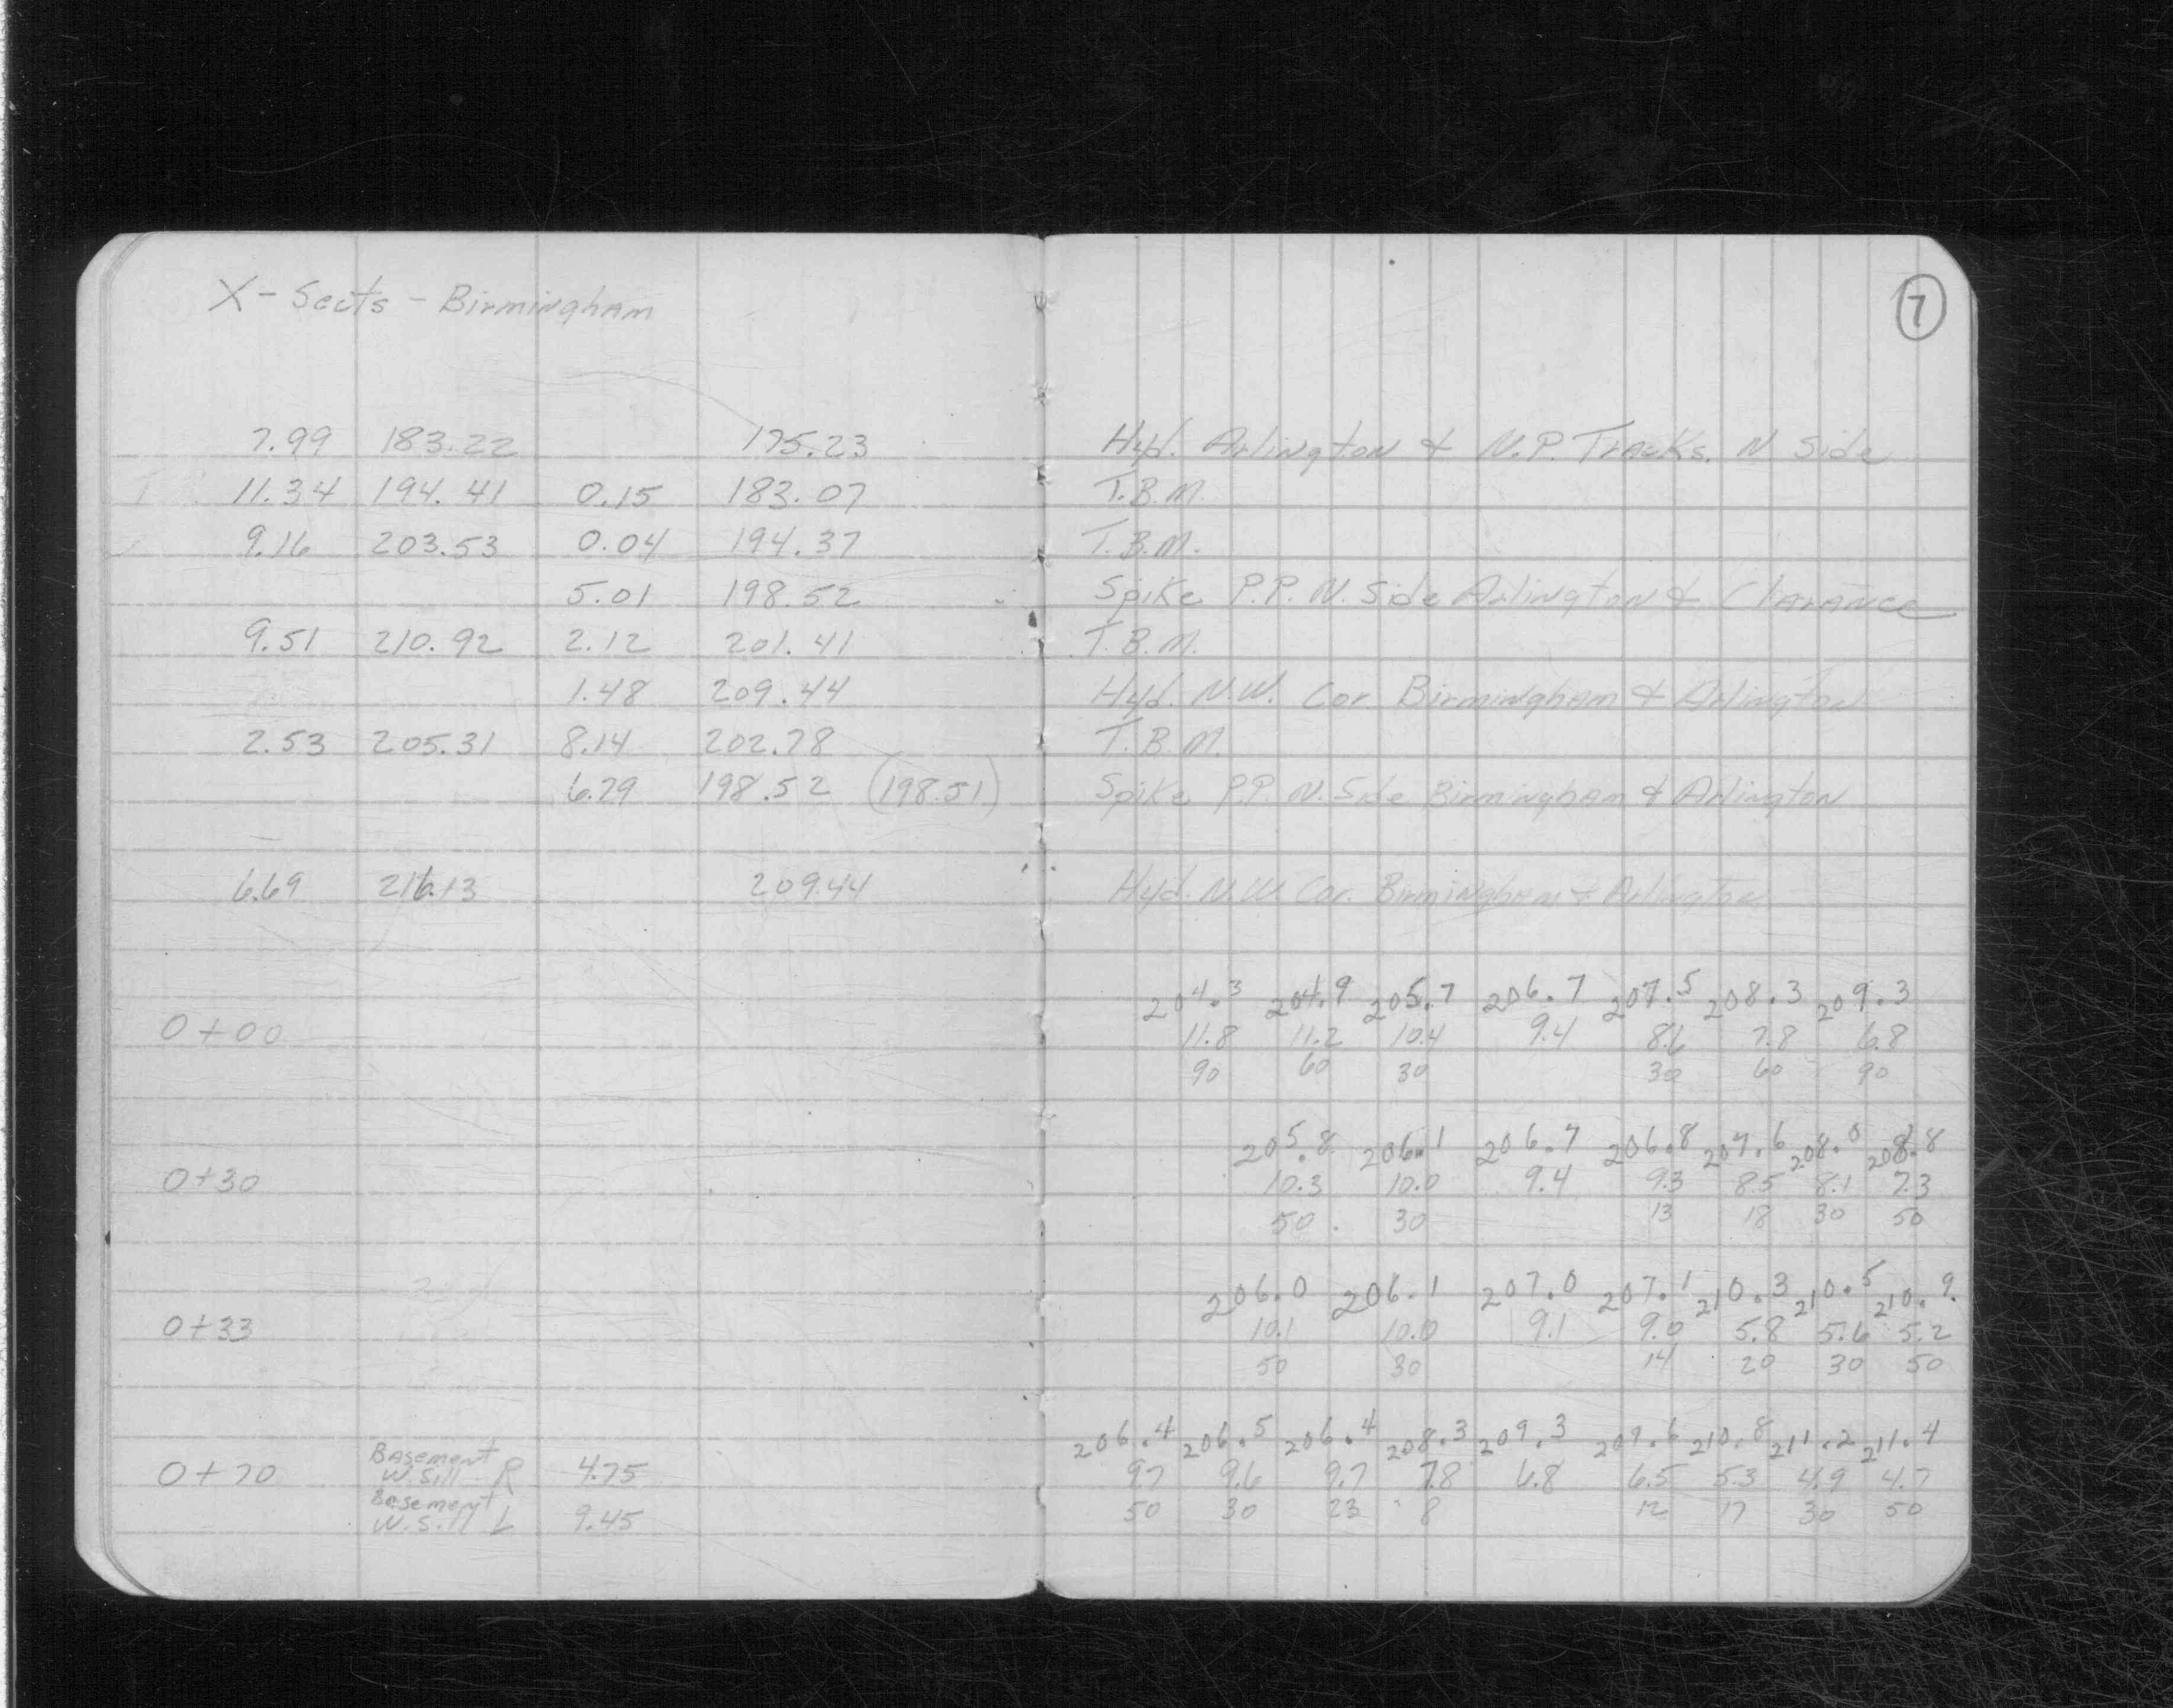 X - Sects - Birmingham
7
7.99 183.22 175.23 Hyd. Arlington & N.P. Tracks. N Side
11.34 194.41 0.15 183.07 T.B.M.
9.16 203.53 0.04 194.37 T.B.M.
5.01 198.52 Spike P.P. N. Side Arlington & Clarance
9.51 210.92 2.12 201.41 T.B.M.
1.48 209.44 Hyd. N.W. Cor Birmingham & Arlington
2.53 205.31 8.14 202.78 T.B.M.
6.79 198.52 (198.51) Spike P.P. N. Side Birmingham & Arlington
6.69 216.13 209.44 Hyd. N.W. Cor. Birmingham & Arlington
204.3 204.9 205.7 206.7 207.5 208.3 209.3
0+00 11.8 11.2 10.4 9.4 8.6 7.8 6.8
90 60 30 30 60 90
205.8 206.1 206.7 206.8 207.6 208.0 208.8
0+30 10.3 10.0 9.4 9.3 8.5 8.1 7.3
50 30 13 18 30 50
206.0 206.1 207.0 207.1 210.3 210.5 210.9
0+33 10.1 10.0 9.1 9.0 5.8 5.6 5.2
50 30 14 20 30 50
206.4 206.5 206.4 208.3 209.3 209.6 210.8 211.2 211.4
0+70 Basement W. Sill R 4.75 9.7 9.6 9.7 7.8 6.8 6.5 5.3 4.9 4.7
Basement W. Sill L 9.45 50 30 23 8 12 17 30 50